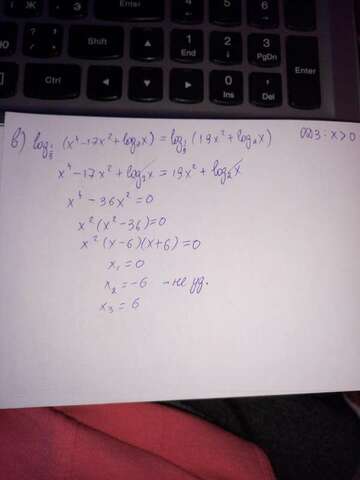 Ю
Э
Shift
▲
1
End
2
↓
3
PgDn
Enter
Ctrl
◄
▼
►
0
Ins
Del
в) log_{1/3} (x⁴-17x²+log₂x) = log_{1/3} (19x²+log₂x) ОДЗ: x>0
x⁴-17x²+log₂x = 19x²+log₂x
x⁴ - 36x² = 0
x²(x²-36)=0
x²(x-6)(x+6)=0
x₁=0
x₂=-6 - не уд.
x₃=6